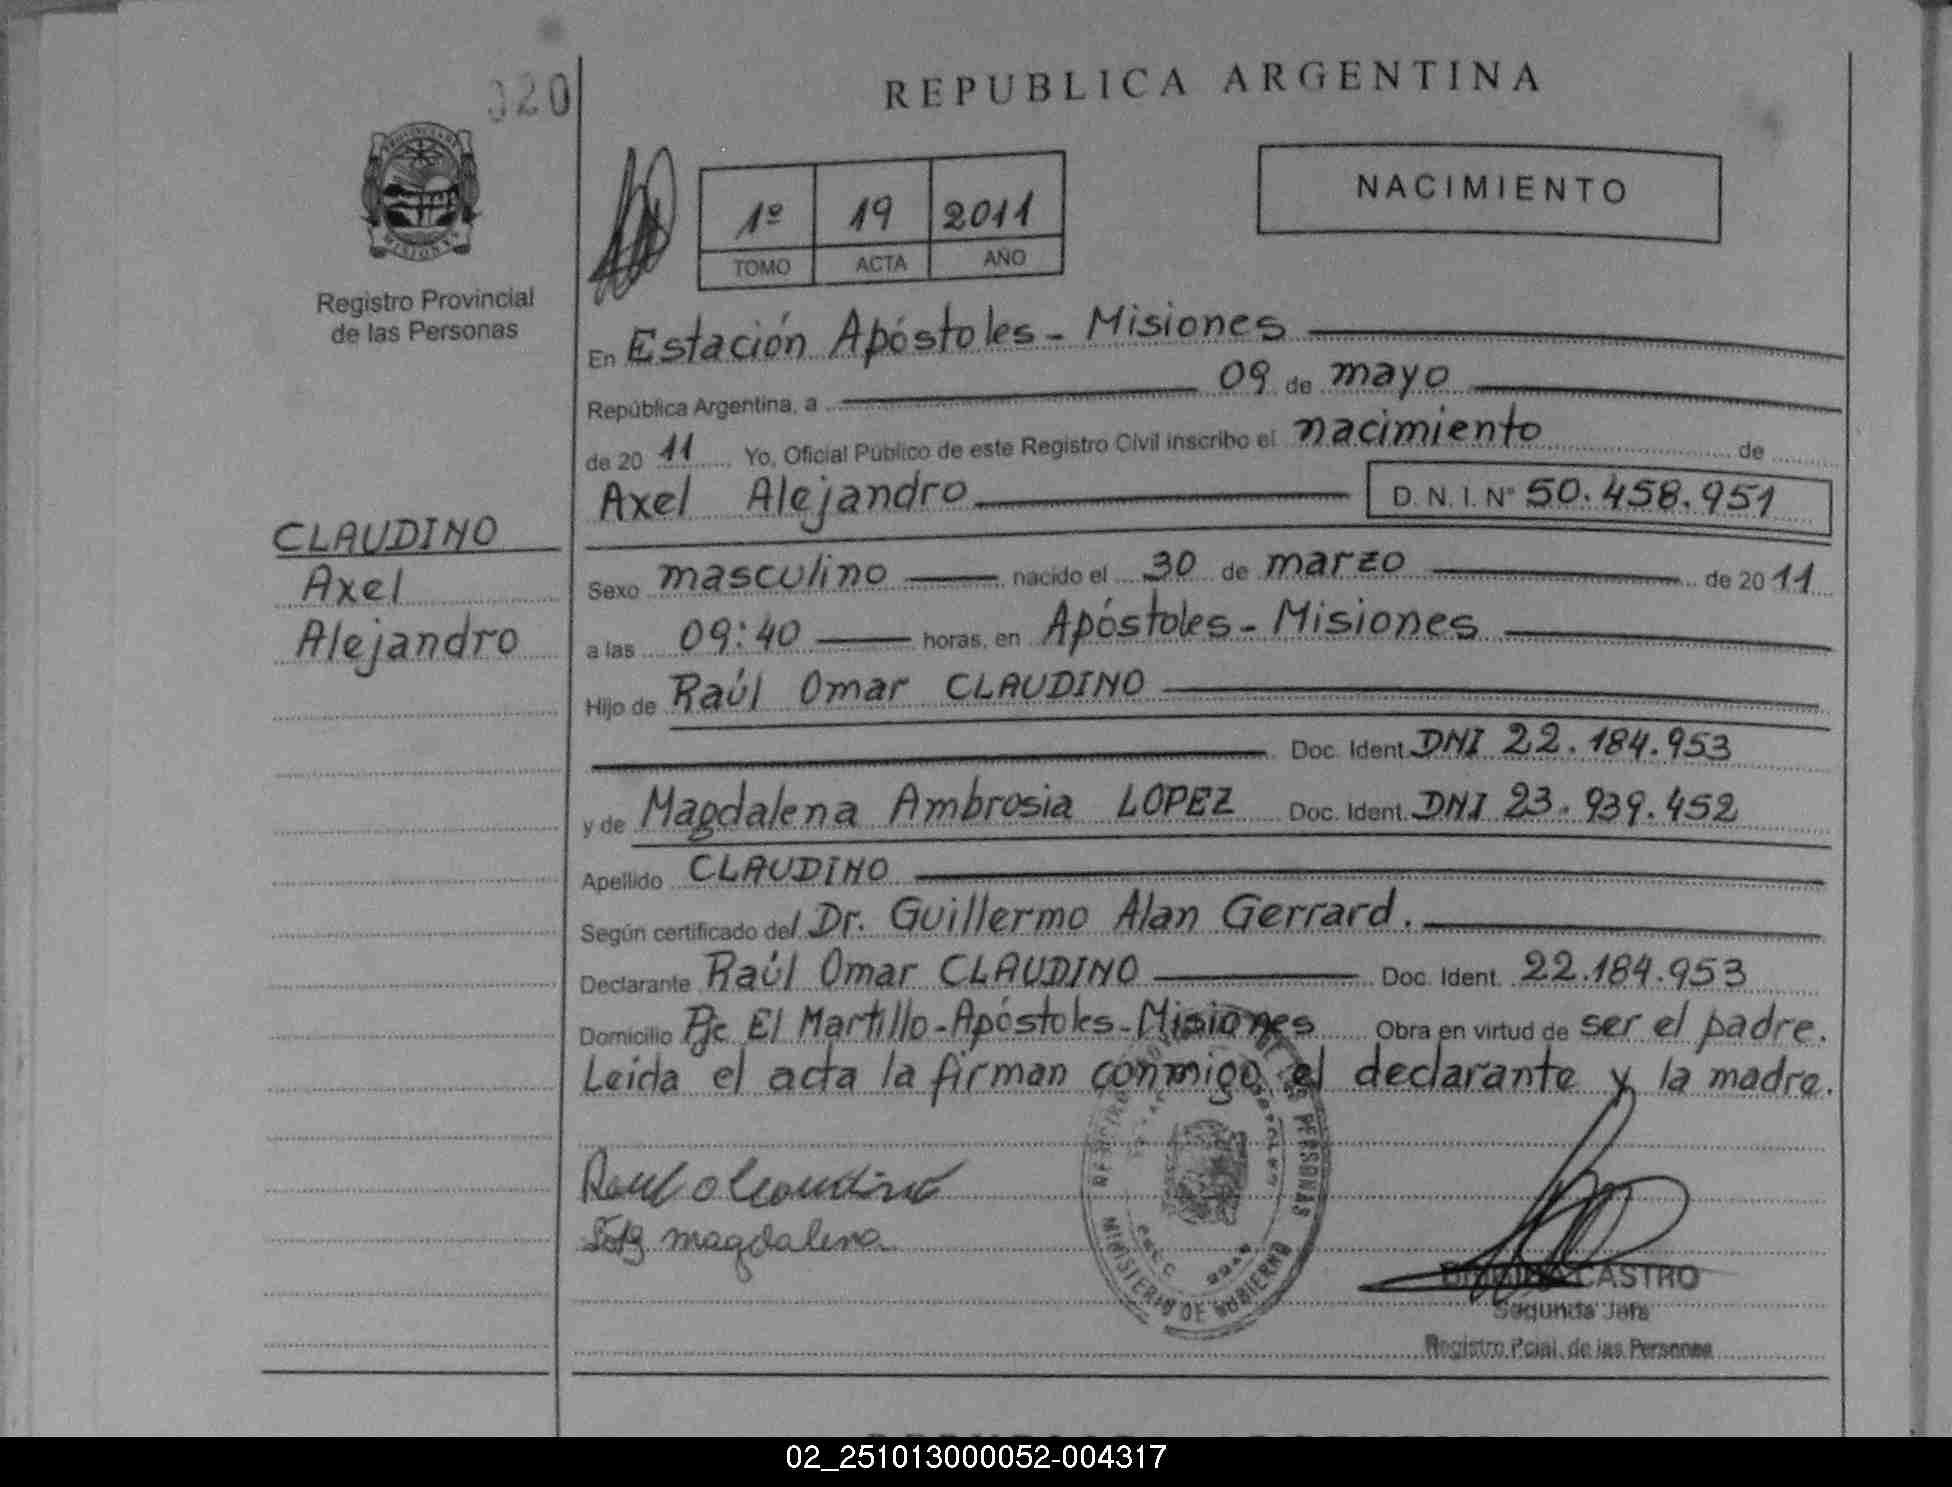 020
REPUBLICA ARGENTINA
NACIMIENTO
1º 19 2011
TOMO ACTA AÑO
Registro Provincial
de las Personas
En Estación Apóstoles - Misiones
República Argentina, a 09 de mayo
de 20 11 Yo, Oficial Público de este Registro Civil inscribo el nacimiento de
Axel Alejandro D. N. I. Nº 50.458.951
CLAUDINO
Axel
Alejandro
Sexo masculino nacido el 30 de marzo de 20 11
a las 09:40 horas, en Apóstoles - Misiones
Hijo de Raúl Omar CLAUDINO
Doc. Ident. DNI 22.184.953
y de Magdalena Ambrosia LOPEZ Doc. Ident. DNI 23.939.452
Apellido CLAUDINO
Según certificado del Dr. Guillermo Alan Gerrard.
Declarante Raúl Omar CLAUDINO Doc. Ident. 22.184.953
Domicilio Pje El Martillo - Apóstoles - Misiones Obra en virtud de ser el padre.
Leida el acta la firman conmigo el declarante y la madre.
Raul o Claudino
magdalena
PERSONAS
MINISTERIO DE GOBIERNO
CASTRO
Segunda Jefa
Registro Pcial. de las Personas
02_251013000052-004317